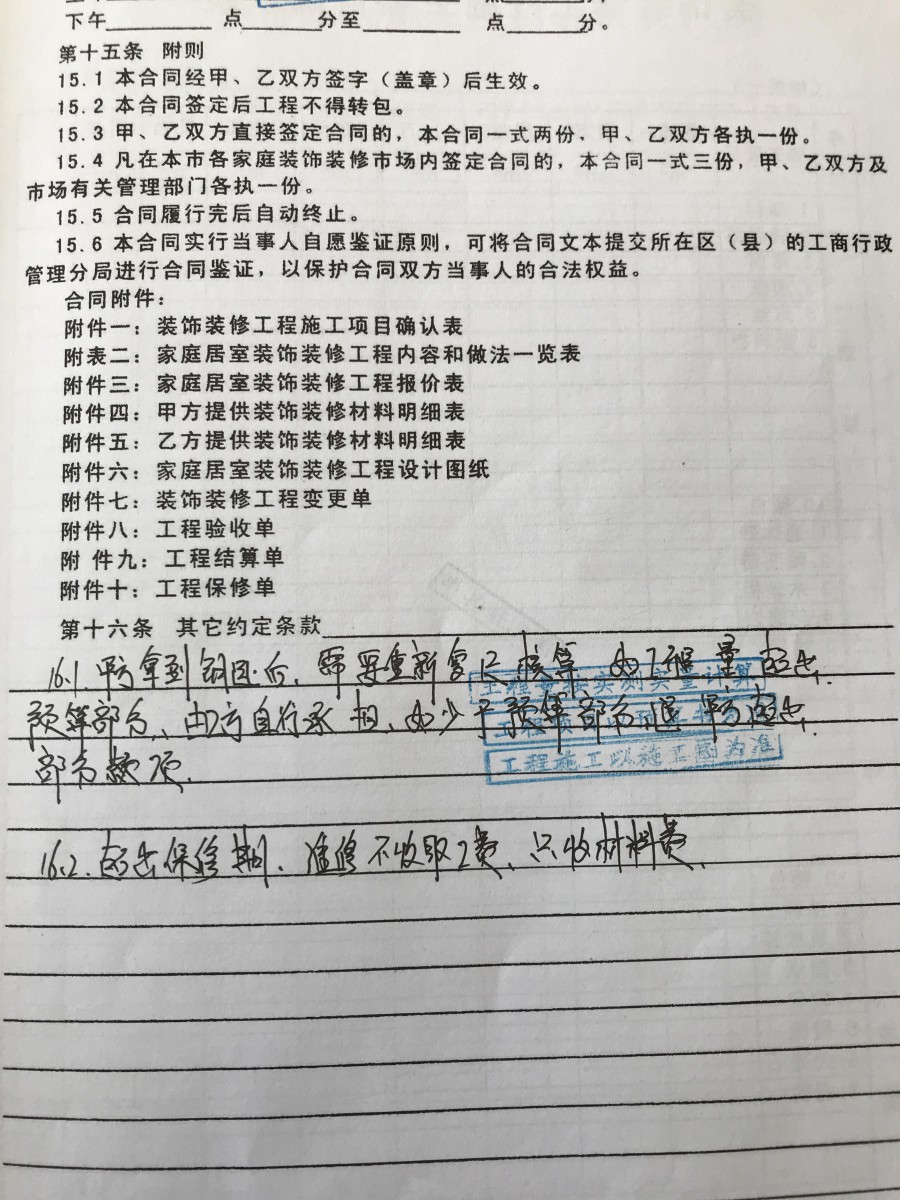 下午______点______分至______点______分。
第十五条 附则
15.1 本合同经甲、乙双方签字（盖章）后生效。
15.2 本合同签定后工程不得转包。
15.3 甲、乙双方直接签定合同的，本合同一式两份，甲、乙双方各执一份。
15.4 凡在本市各家庭装饰装修市场内签定合同的，本合同一式三份，甲、乙双方及
市场有关管理部门各执一份。
15.5 合同履行完后自动终止。
15.6 本合同实行当事人自愿鉴证原则，可将合同文本提交所在区（县）的工商行政
管理分局进行合同鉴证，以保护合同双方当事人的合法权益。
合同附件：
附件一：装饰装修工程施工项目确认表
附表二：家庭居室装饰装修工程内容和做法一览表
附件三：家庭居室装饰装修工程报价表
附件四：甲方提供装饰装修材料明细表
附件五：乙方提供装饰装修材料明细表
附件六：家庭居室装饰装修工程设计图纸
附件七：装饰装修工程变更单
附件八：工程验收单
附 件九：工程结算单
附件十：工程保修单
第十六条 其它约定条款
16.1. 拿到 后, 需要重新复尺核算. 工程量超出
工程 实测实量计算
预算部分, 由 方自行承担, 少于预算部分, 退 方
部分款项.
工程施工以施工图为准
16.2. 超出保修期, 维修不收取工费, 只收材料费.